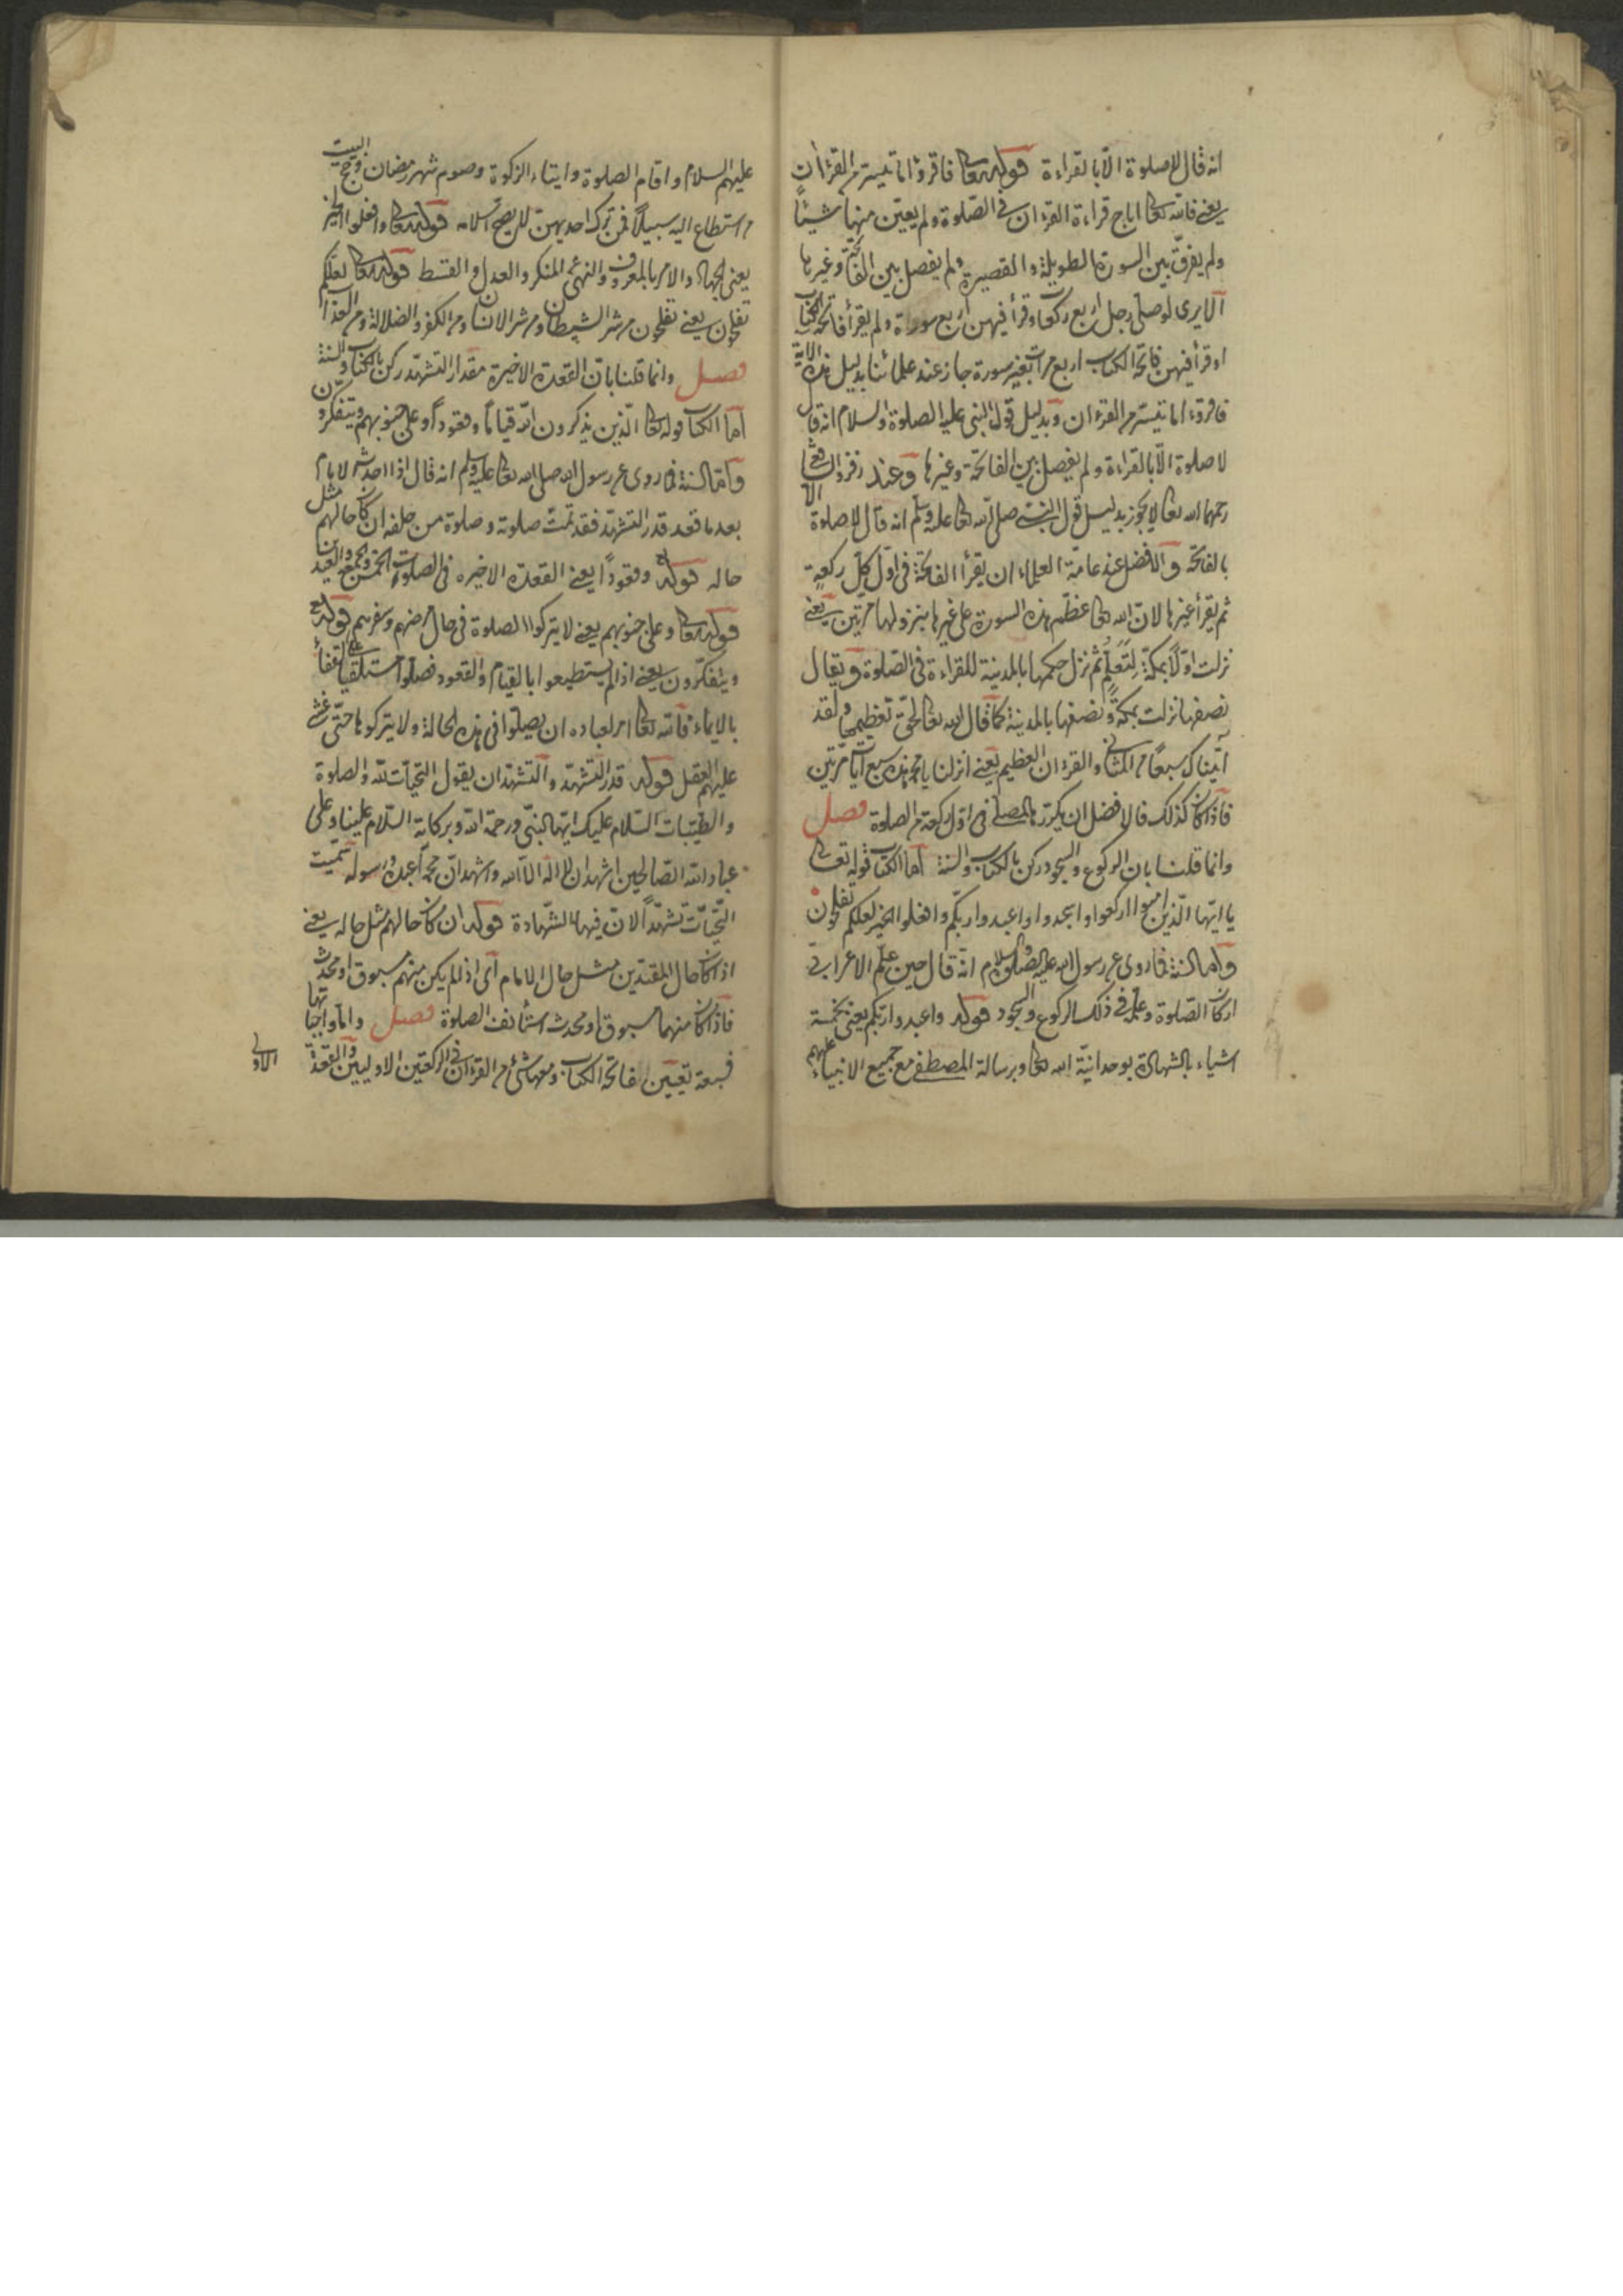 انه قال لا صلوة الا بالقراءة قوله تعا فاقرؤا ما تيسر من القرءان
يعنى فانه تعا اباح قراءة القرءان فى الصلوة ولم يعين منها شيئا
ولم يفرق بين السورة الطويلة والقصيرة ولم يفصل بين الفاتحة وغيرها
الا يرى لو صلى رجل اربع ركعات وقرأ فيهن اربع سورة ولم يقرأ فاتحة الكتاب
او قرأ فيهن فاتحة الكتاب اربع مرات بغير سورة جاز عند علمائنا بدليل هذه الاية
فاقرءوا ما تيسر من القرءان وبدليل قول النبى عليه الصلوة والسلام انه قال
لا صلوة الا بالقراءة ولم يفصل بين الفاتحة وغيرها وعند زفر والشافعى
رحمهما الله تعا لا يجوز بدليل قول النبى صلى الله تعا عليه وسلم انه قال لا صلوة الا
بالفاتحة والافضل عند عامة العلماء ان يقرأ الفاتحة فى اول كل ركعة
ثم يقرأ غيرها لان الله تعا عظم هذه السورة على غيرها بنزولها مرتين يعنى
نزلت اولا بمكة لتعلم ثم نزل حكمها بالمدينة للقراءة فى الصلوة ويقال
نصفها نزلت بمكة ونصفها بالمدينة كما قال الله تعا لحق تعظيمها ولقد
آتيناك سبعا من المثانى والقرءان العظيم يعنى انزلنا يا محمد هذه سبع آيات مرتين
فاذا كان كذلك فالافضل ان يكررها المصلى فى اول ركعة من الصلوة فصل
وانما قلنا بان الركوع والسجود ركن بالكتاب والسنة اما الكتاب قوله تعالى
يا ايها الذين امنوا اركعوا واسجدوا واعبدوا ربكم وافعلوا الخير لعلكم تفلحون
واما السنة فما روى عن رسول الله عليه الصلوة والسلام انه قال حين علم الاعرابى
اركان الصلوة وعلمه فى ذلك الركوع والسجود قوله واعبدوا ربكم يعنى بخمسة
اشياء بالشهادة بوحدانية الله تعا وبرسالة المصطفى مع جميع الانبياء عليهم
عليهم السلام واقام الصلوة وايتاء الزكوة وصوم شهر رمضان وحج البيت
من استطاع اليه سبيلا فمن ترك احديهن لا يصح اسلامه قوله تعا وافعلوا الخير
يعنى الجهاد والامر بالمعروف والنهى عن المنكر والعدل والقسط قوله تعا لعلكم
تفلحون يعنى تفلحون من شر الشيطان ومن شر الانسان ومن الكفر والضلالة ومن العذاب
فصل وانما قلنا بان القعدة الاخيرة مقدار التشهد ركن بالكتاب والسنة
اما الكتاب قوله تعا الذين يذكرون الله قياما وقعودا وعلى جنوبهم ويتفكرون
واما السنة فما روى عن رسول الله صلى الله تعا عليه وسلم انه قال اذا احدث الامام
بعد ما قعد قدر التشهد فقد تمت صلوته وصلوة من خلفه ان كان حالهم مثل
حاله قوله تع وقعودا يعنى القعدة الاخيرة فى الصلوات الخمس والجمعة والعيدين
قوله تعا وعلى جنوبهم يعنى لا يتركوا الصلوة فى حال مرضهم وسفرهم قوله تع
ويتفكرون يعنى اذا لم يستطيعوا بالقيام والقعود فصلوا مستلقيا على القفاء
بالايماء فانه تعا امر لعباده ان يصلوا فى هذه الحالة ولا يتركوها حتى غشى
عليهم العقل قوله قدر التشهد والتشهد ان يقول التحيات لله والصلوة
والطيبات السلام عليك ايها النبى ورحمة الله وبركاته السلام علينا وعلى
عباد الله الصالحين اشهد ان لا اله الا الله واشهد ان محمدا عبده ورسوله سميت
التحيات تشهدا لان فيها الشهادة قوله ان كان حالهم مثل حاله يعنى
اذا كان حال المقتدين مثل حال الامام اى اذا لم يكن منهم مسبوق او محدث
فاذا كان منهما مسبوق او محدث استأنف الصلوة فصل واما واجباتها
فسبعة تعيين فاتحة الكتاب ومعها شئ من القرءان فى الركعتين الاوليين والقعدة
الاولى